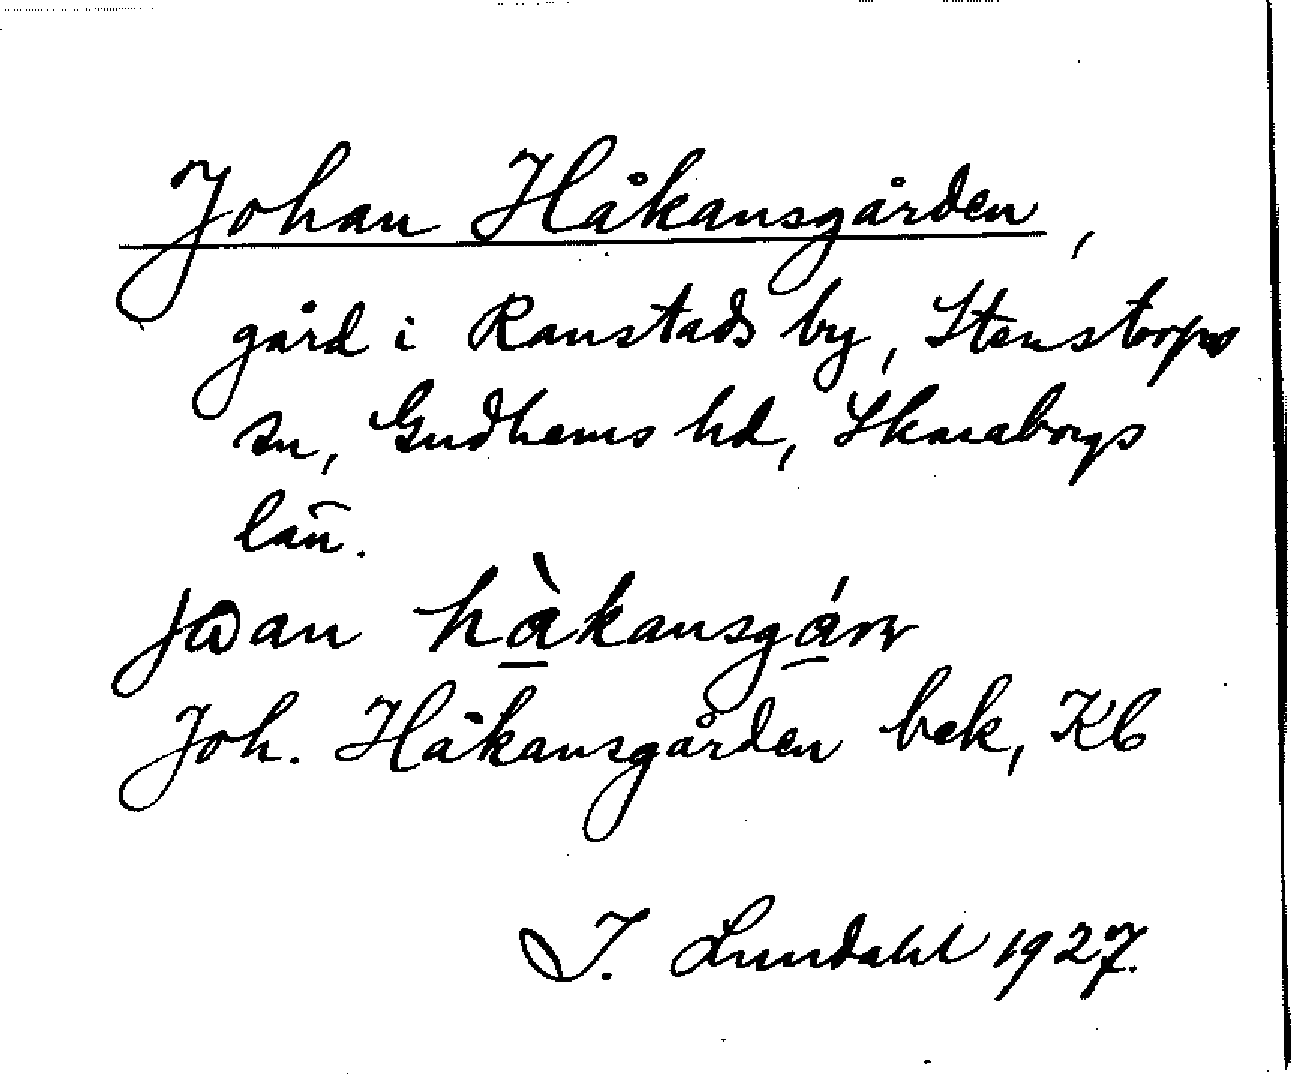 Johan Håkansgården,
gård i Ranstads by, Stenstorps
sn, Gudhems hd, Skaraborgs
län.
håkansgár
Joh. Håkansgården bek, Kb
I. Lundahl 1927.